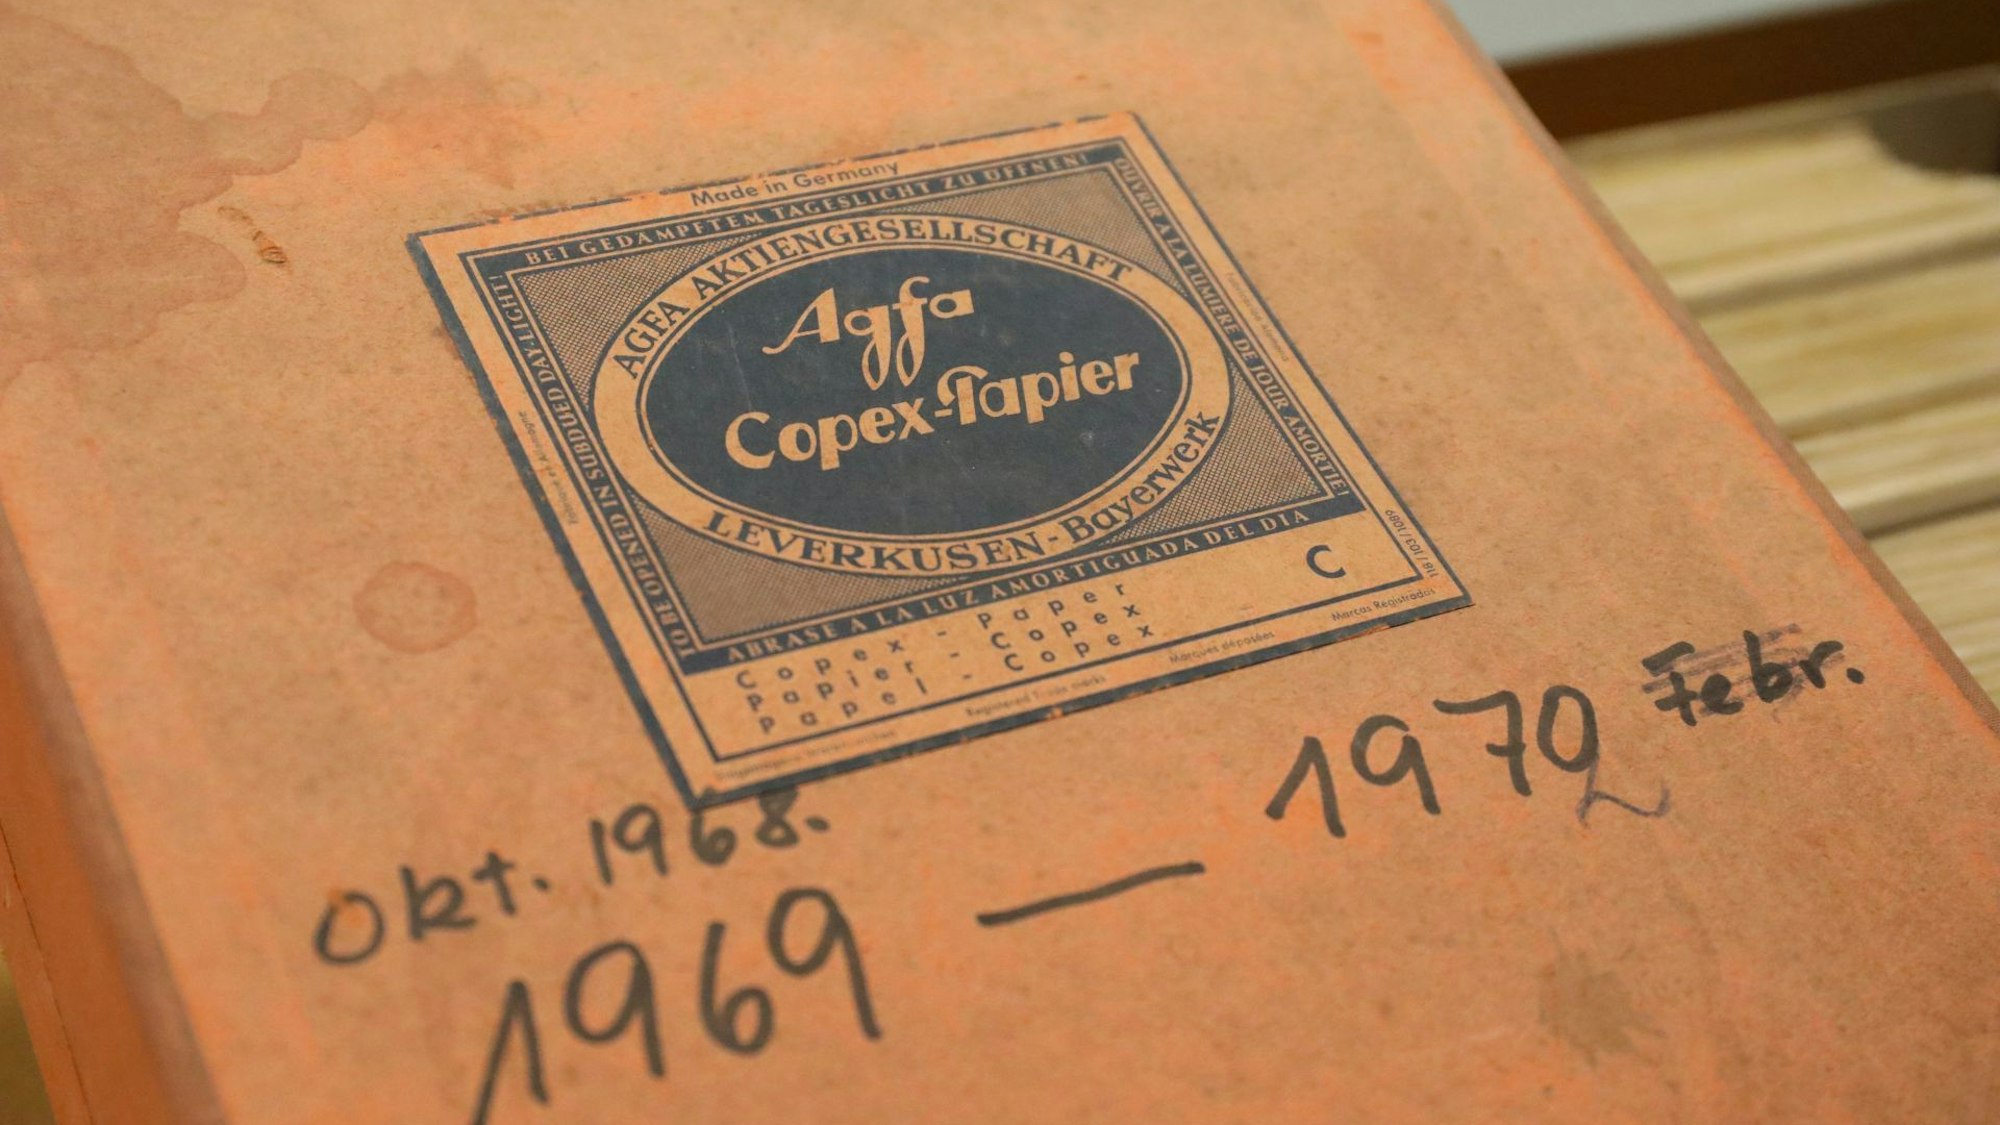 Made in Germany
BEI GEDÄMPFTEM TAGESLICHT ZU ÖFFNEN!
TO BE OPENED IN SUBDUED DAY-LIGHT!
OUVRIR A LA LUMIERE DE JOUR AMORTIE!
AGFA AKTIENGESELLSCHAFT
Agfa
Copex-Papier
LEVERKUSEN-Bayerwerk
ABRASE A LA LUZ AMORTIGUADA DEL DIA
Copex - Paper
Papier - Copex
Papel - Copex
C
118/103/1089
Fabriqué en Allemagne
Registered Trade marks
Marques déposées
Marcas Registradas
Okt. 1968.
1969 — 1970 Febr.